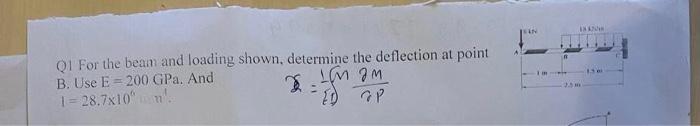 Q1 For the beam and loading shown, determine the deflection at point
B. Use E = 200 GPa. And
I = 28.7x10⁶
= 1/EI ∫ M ∂M/∂P
A
B
C
1 m
1.5 m
2.5 m